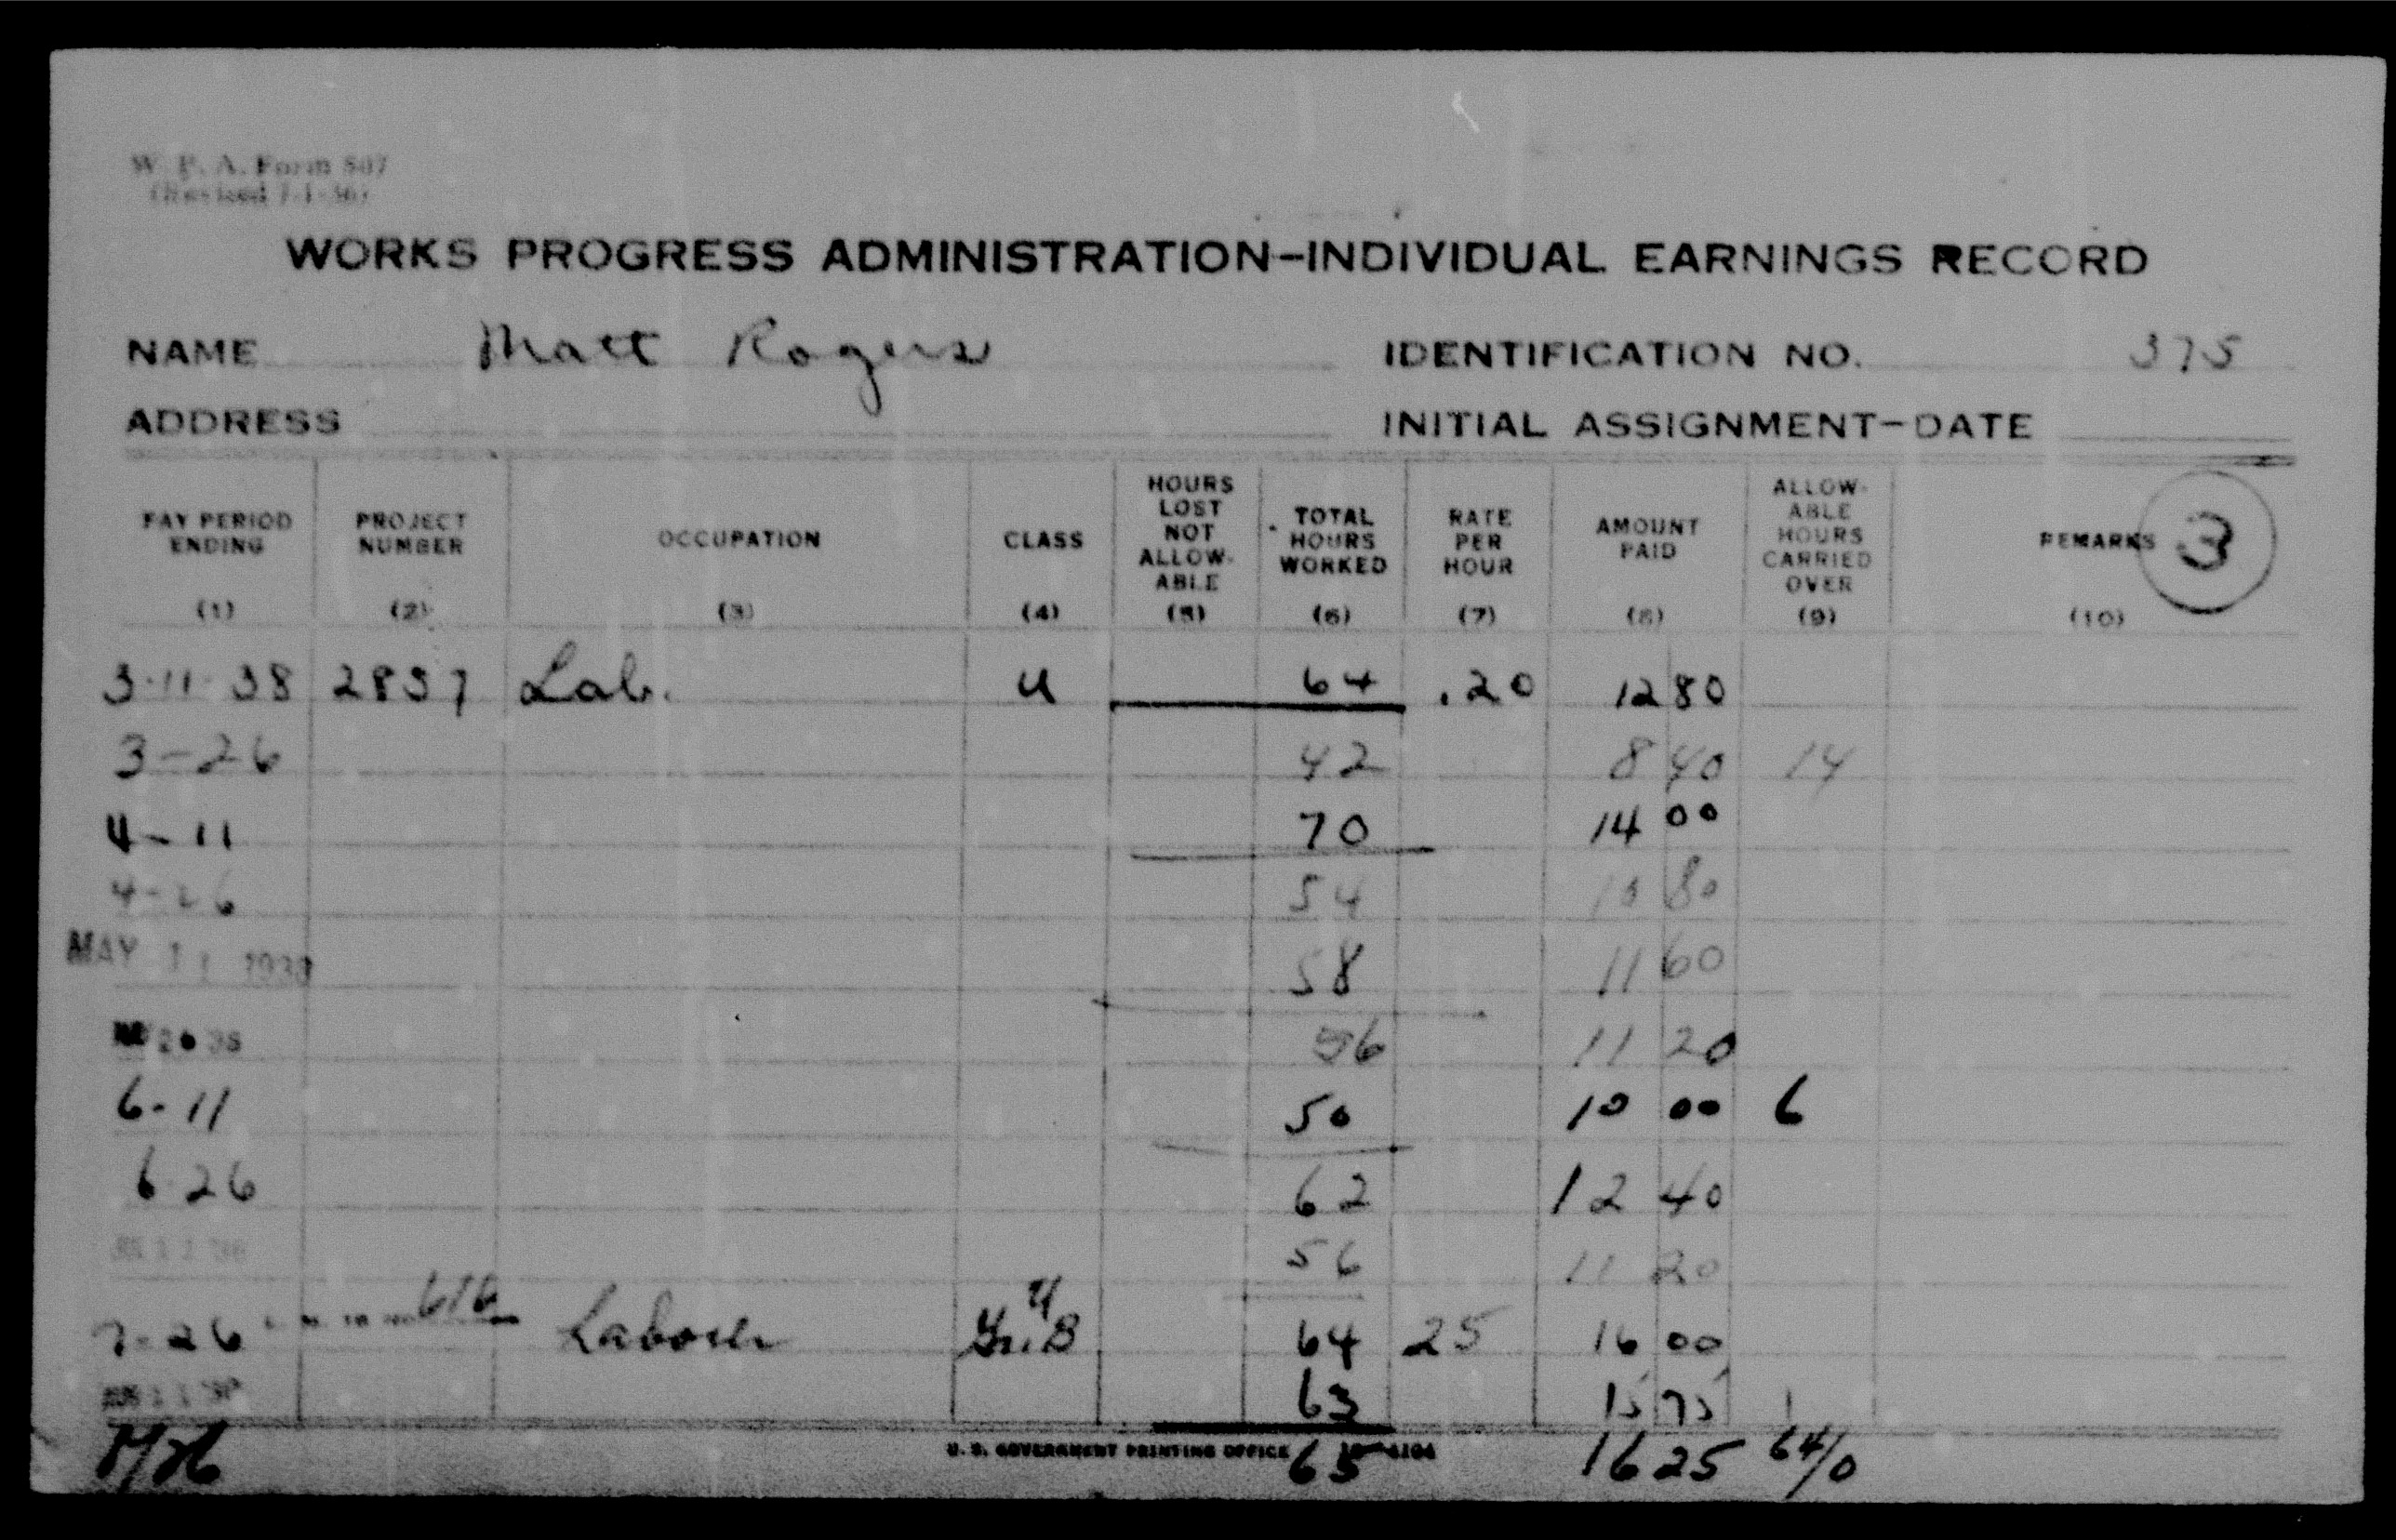 W. P. A. Form 507
(Revised 7-1-36)
WORKS PROGRESS ADMINISTRATION—INDIVIDUAL EARNINGS RECORD
NAME Matt Rogers IDENTIFICATION NO. 375
ADDRESS INITIAL ASSIGNMENT—DATE
PAY PERIOD ENDING PROJECT NUMBER OCCUPATION CLASS HOURS LOST NOT ALLOW-ABLE TOTAL HOURS WORKED RATE PER HOUR AMOUNT PAID ALLOW-ABLE HOURS CARRIED OVER REMARKS 3
(1) (2) (3) (4) (5) (6) (7) (8) (9) (10)
3-11-38 2857 Lab. U 64 .20 12 80
3-26 42 8 40 14
4-11 70 14 00
4-26 54 10 80
MAY 11 1938 58 11 60
26 38 56 11 20
6-11 50 10 00 6
6 26 62 12 40
11 38 56 11 20
7-26 616 Laborer U Gr. B 64 25 16 00
63 15 75 1
8/26 65 16 25 64/0
U. S. GOVERNMENT PRINTING OFFICE